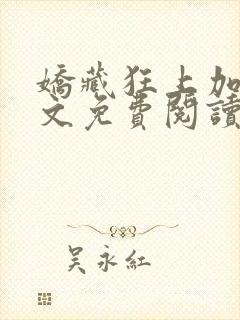 嬌藏狂上加
文免費閱讀
吴永紅